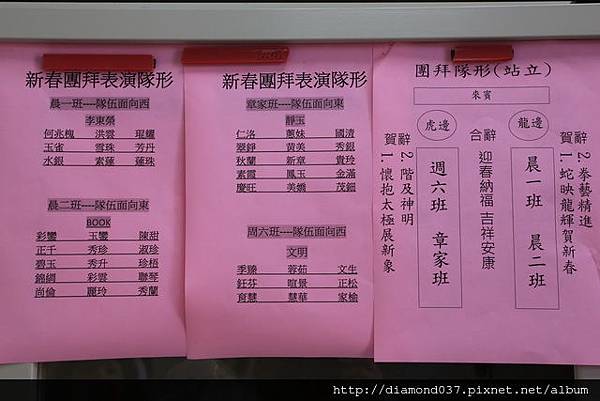 新春團拜表演隊形
晨一班----隊伍面向西
李東榮
何兆槐 洪雲 琨耀
玉雀 雪珠 芳丹
水銀 素蓮 蓮珠
晨二班----隊伍面向東
BOOK
彩鑾 玉鑾 陳甜
正千 秀珍 淑珍
碧玉 秀升 珍梧
錦綢 彩雲 聯琴
尚倫 麗玲 秀蘭
新春團拜表演隊形
章家班----隊伍面向東
靜玉
仁洛 蕙妹 國清
翠錚 黄美 秀銀
秋蘭 新章 貴玲
素霞 鳳玉 金滿
慶旺 美嬌 茂銀
周六班----隊伍面向西
文明
季臻 蓉茹 文生
鈺芬 暄景 正松
育慧 慧華 家榆
團拜隊形(站立)
來賓
龍邊
虎邊
賀辭
1. 蛇映龍輝賀新春
2. 拳藝精進
晨一班 晨二班
合辭
迎春納福 吉祥安康
週六班 章家班
賀辭
1. 懷抱太極展新象
2. 階及神明
http://diamond037.pixnet.net/album